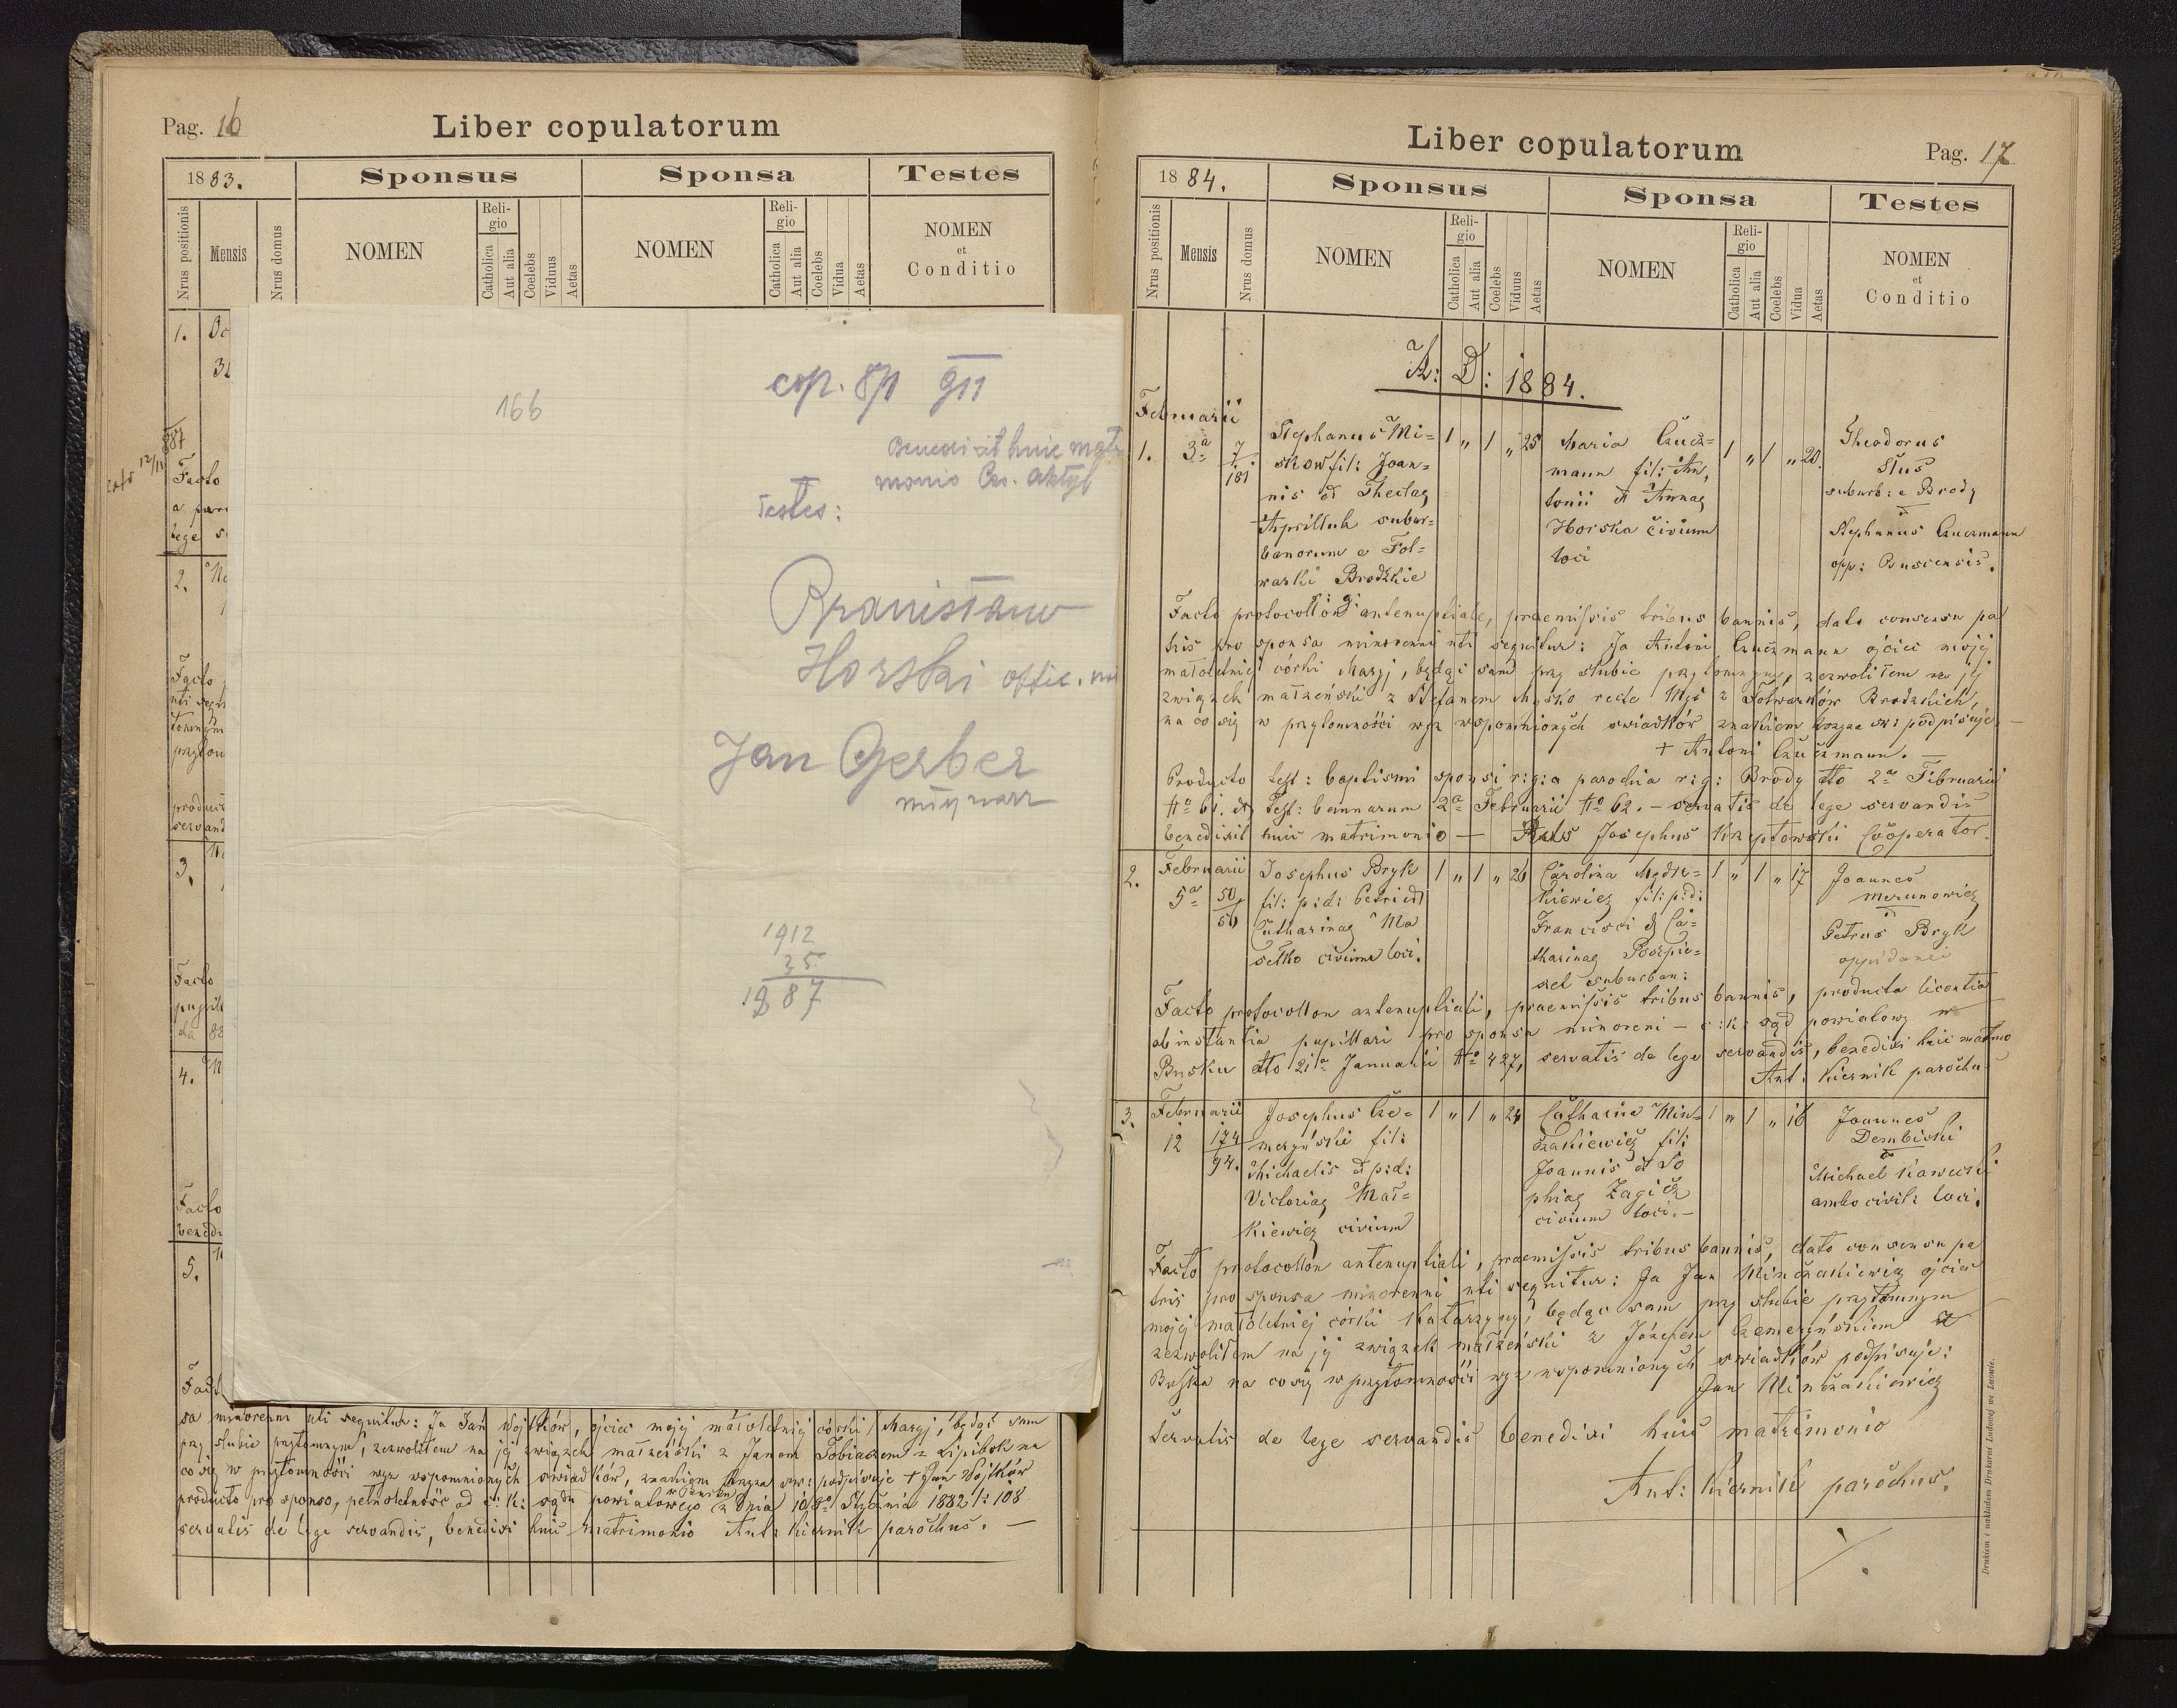 Pag. 16
Liber copulatorum
1883.
Sponsus
Sponsa
Testes
Nrus positionis
Mensis
Nrus domus
NOMEN
Religio
Catholica
Aut alia
Coelebs
Viduus
Aetas
NOMEN
Religio
Catholica
Aut alia
Coelebs
Vidua
Aetas
NOMEN
et
Conditio
1.
Facto
lege
2.
Facto
3.
Facto
4.
Facto
5.
166
cop. 8/1 911
Benedixit huic matri
monio
Testes:
Bronisław
Horski offic.
Jan Gerber
młynarz
1912
25
1887
sa minorenni uti sequitur: Ja Jan Wojtków, ojciec mojej małoletniej córki Maryi, będąc sam
przy ślubie przytomnym, zezwoliłem na jej związek małżeński z Janem Tobiaszem z Lipibok na
co się w przytomności wyż wspomnionych świadków, znakiem krzyża św: podpisuję + Jan Wojtków
producto pro sponso, pełnoletność od c: k: sądu powiatowego w Busku z dnia 108 Stycznia 1882 l: 108
servatis de lege servandis, benedixi huic matrimonio Ant: Kiernik parochus. —
Liber copulatorum
Pag. 17
1884.
Sponsus
Sponsa
Testes
Nrus positionis
Mensis
Nrus domus
NOMEN
Religio
Catholica
Aut alia
Coelebs
Viduus
Aetas
NOMEN
Religio
Catholica
Aut alia
Coelebs
Vidua
Aetas
NOMEN
et
Conditio
A: D: 1884.
Februarii
1. 3a 7/181 Stephanus Mi= 1 " 1 " 25 Maria Czucz= 1 " 1 " 20 Theodorus
skow fil: Joan= mann fil: An, Stus
nis et Theclae tonii et Annae suburb: e Brody
Apriłluk subur= Horska civium et
banorum e Fol= loci Stephanus Czuczmann
warki Brodzkie opp: Buscensis.
r: g:
Facto protocollon antenuptiale, praemissis tribus bannis, dato consensu pa
tris pro sponsa minorenni uti sequitur: Ja Antoni Czuczmann ojciec mojej
małoletniej córki Maryi, będąc sam przy ślubie przytomnym, zezwoliłem na jej
związek małżeński z Stefanem Mysko recte Myś z Folwarków Brodzkich,
na co się w przytomności wyż wspomnionych świadków znakiem krzyża św: podpisuję —
+ Antoni Czuczmann. —
Producto test: baptismi sponsi r: g: a parochia r: g: Brody dto 2a Februarii
No 61. et Test: bannorum 2a Februarii No 62. — servatis de lege servandis
benedixit huic matrimonio — Josephus Krzeptowski Cooperator.
2. Februarii Josephus Bryk 1 " 1 " 26 Carolina Mędr= 1 " 1 " 17 Joannes
5a 50/56 fil: p: d: Petri et kiewicz fil: p: d: Merunowicz
Catharinae Ma Francisci et Ca= et
setko civium loci. tharinae Pospie= Petrus Bryk
szel suburban: oppidanei
Facto protocollon antenuptiali, praemissis tribus bannis, producta licentia
ab instantia pupillari pro sponsa minoreni — c: k: sąd powiatowy w
Busku dto 21a Januarii No 427, servatis de lege servandis, benedixi huic matmo
Ant: Kiernik parochu
3. Februarii Josephus Cze= 1 " 1 " 24 Catharina Min= 1 " 1 " 16 Joannes
12 174/94. meryński fil: czakiewicz fil: Dembicki
Michaelis et p: d: Joannis et So et
Victoriae Mał= phiae Zagicz Michael Kawecki
kiewicz civium civium loci. — ambo civils loci.
Facto protocollon antenuptiali, praemissis tribus bannis, dato consensu pa
tris pro sponsa minorenni uti sequitur: Ja Jan Minczakiewicz ojciec
mojej małoletniej córki Katarzyny, będąc sam przy ślubie przytomnym
zezwoliłem na jej związek małżeński z Józefem Czemeryńskiem z
Buska na co się w przytomności wyż wspomnionych świadków podpisuję:
Jan Minczakiewicz
Servatis de lege servandis benedixi huic matrimonio
Ant: Kiernik parochus.
Drukiem i nakładem Drukarni Ludowej we Lwowie.